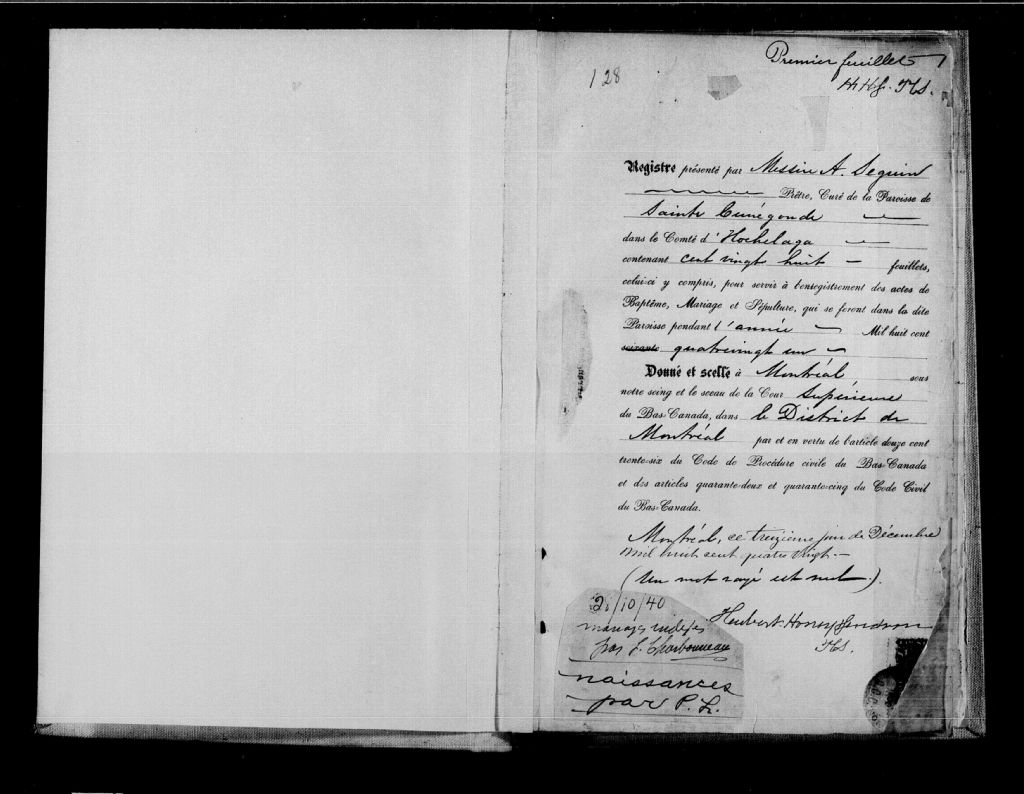 Premier feuillet
HHG. THS.
128
Registre présenté par Messire A. Seguin
Prêtre, Curé de la Paroisse de
Sainte Cunégonde
dans le Comté d'Hochelaga
contenant cent vingt huit feuillets,
celui-ci y compris, pour servir à l'enregistrement des actes de
Baptême, Mariage et Sépulture, qui se feront dans la dite
Paroisse pendant l'année Mil huit cent
soixante quatrevingt un
Donné et scellé à Montréal, sous
notre seing et le sceau de la Cour Supérieure
du Bas-Canada, dans le District de
Montréal par et en vertu de l'article douze cent
trente-six du Code de Procédure civile du Bas-Canada
et des articles quarante-deux et quarante-cinq du Code Civil
du Bas-Canada.
Montréal, ce treizième jour de Décembre
mil huit cent quatre vingt.
(Un mot rayé est nul.)
Hubert-Honey Gendron
THS.
21/10/40
mariages indexés
par J. Charbonneau
naissances
par P. L.